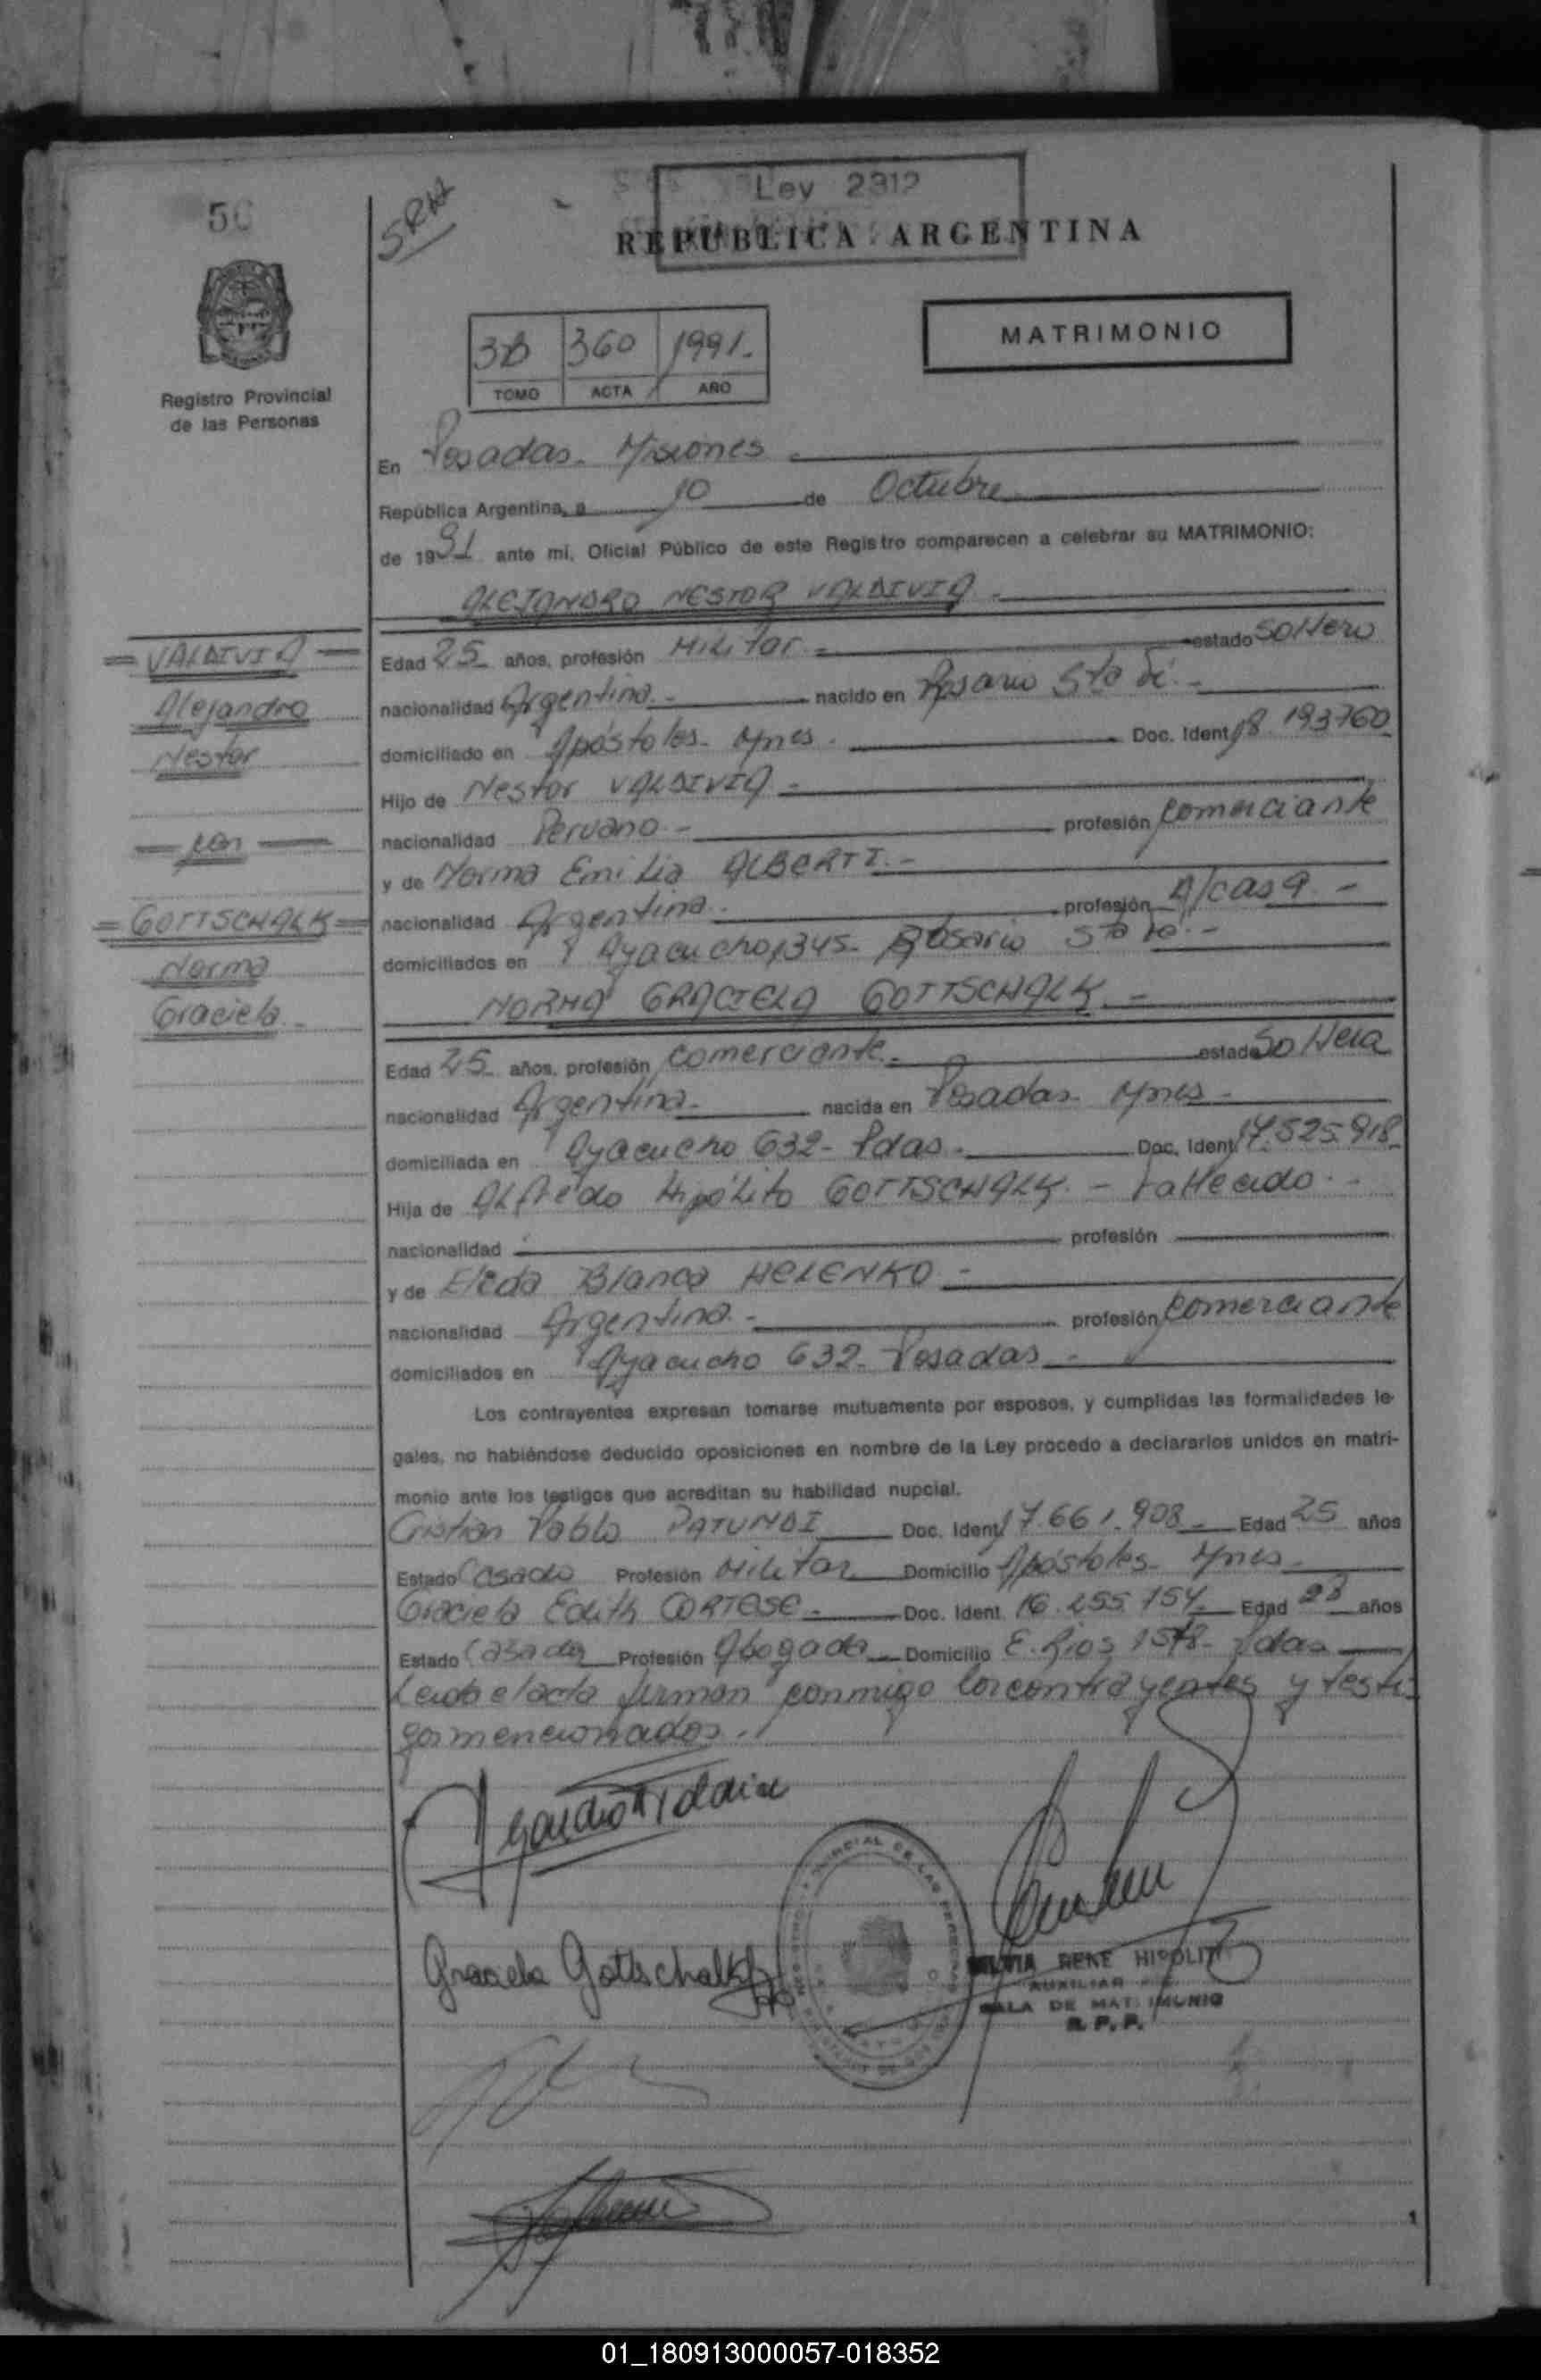 56
SRHA
Ley 2312
REPUBLICA ARGENTINA
Registro Provincial
de las Personas
3B 360 1991.-
TOMO ACTA AÑO
MATRIMONIO
En Posadas - Misiones -
República Argentina, a 10 de Octubre
de 1991 ante mi, Oficial Público de este Registro comparecen a celebrar su MATRIMONIO:
ALEJANDRO NESTOR VALDIVIA -
= VALDIVIA =
Alejandro
Nestor
= con =
= GOTTSCHALK =
Norma
Graciela -
Edad 25 años, profesión Militar - estado Soltero
nacionalidad Argentina - nacido en Rosario Sta Fé. -
domiciliado en Apóstoles - Mnes - Doc. Ident. 18.193760
Hijo de Nestor VALDIVIA -
nacionalidad Peruano - profesión comerciante
y de Norma Emilia ALBERTI. -
nacionalidad Argentina - profesión A/casa. -
domiciliados en Ayacucho 1345 - Rosario Sta Fé. -
NORMA GRACIELA GOTTSCHALK. -
Edad 25 años, profesión comerciante - estado Soltera
nacionalidad Argentina - nacida en Posadas - Mnes -
domiciliada en Ayacucho 632 - Pdas - Doc. Ident. 17.525.918
Hija de Alfredo Hipólito GOTTSCHALK. - Fallecido. -
nacionalidad profesión
y de Eleda Blanca HELENKO -
nacionalidad Argentina - profesión comerciante
domiciliados en Ayacucho 632 - Posadas -
Los contrayentes expresan tomarse mutuamente por esposos, y cumplidas las formalidades le-
gales, no habiéndose deducido oposiciones en nombre de la Ley procedo a declararlos unidos en matri-
monio ante los testigos que acreditan su habilidad nupcial.
Cristian Pablo PATUNDI Doc. Ident. 17.661.908 - Edad 25 años
Estado Casado Profesión Militar Domicilio Apóstoles - Mnes -
Graciela Edith CORTESE - Doc. Ident. 16.255.154 Edad 28 años
Estado Casada Profesión Abogada Domicilio E. Rios 1578 - Pdas
Leida el acta firman conmigo los contrayentes y testi
gos mencionados.
Graciela Gottschalk
SILVIA RENE HIPOLIT
AUXILIAR
SALA DE MATRIMONIO
R. P. P.
01_180913000057-018352